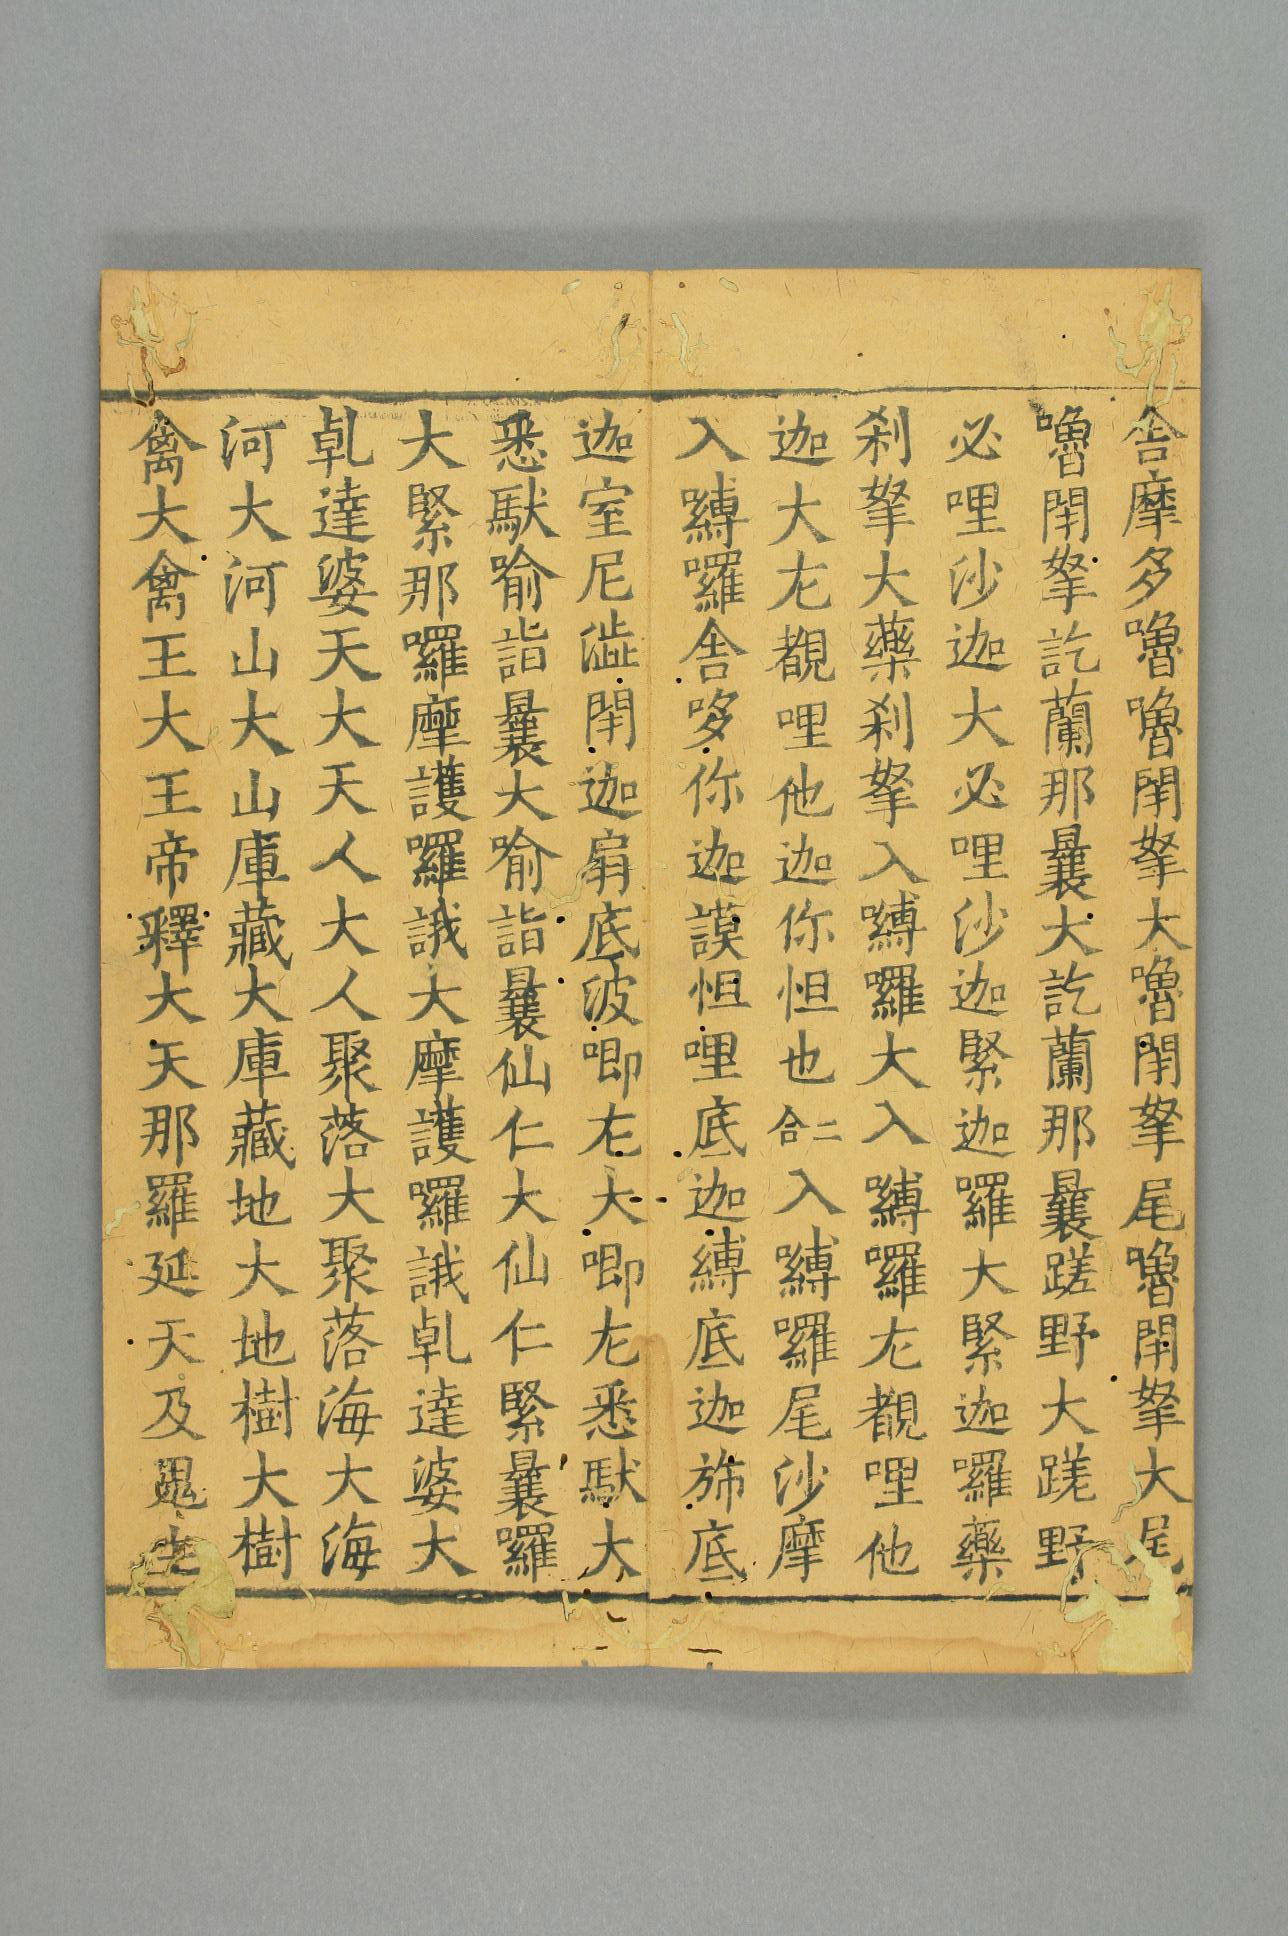 舍摩多嚕嚕閉拏大嚕閉拏尾嚕閉拏大尾
嚕閉拏訖蘭那曩大訖蘭那曩蹉野大蹉野
必哩沙迦大必哩沙迦緊迦羅大緊迦囉藥
刹拏大藥刹拏入嚩囉大入嚩囉尢覩哩他
迦大尢覩哩他迦你怛也二合入嚩囉尾沙摩
入嚩囉舍哆你迦謨怛哩底迦嚩底迦旆底
迦室尼澁閉迦扇底波唧尢大唧尢悉馱大
悉馱喻詣曩大喻詣曩仙仁大仙仁緊曩囉
大緊那囉摩護囉誐大摩護囉誐乹達婆大
乹達婆天大天人大人聚落大聚落海大海
河大河山大山庫藏大庫藏地大地樹大樹
禽大禽王大王帝釋大天那羅延天及